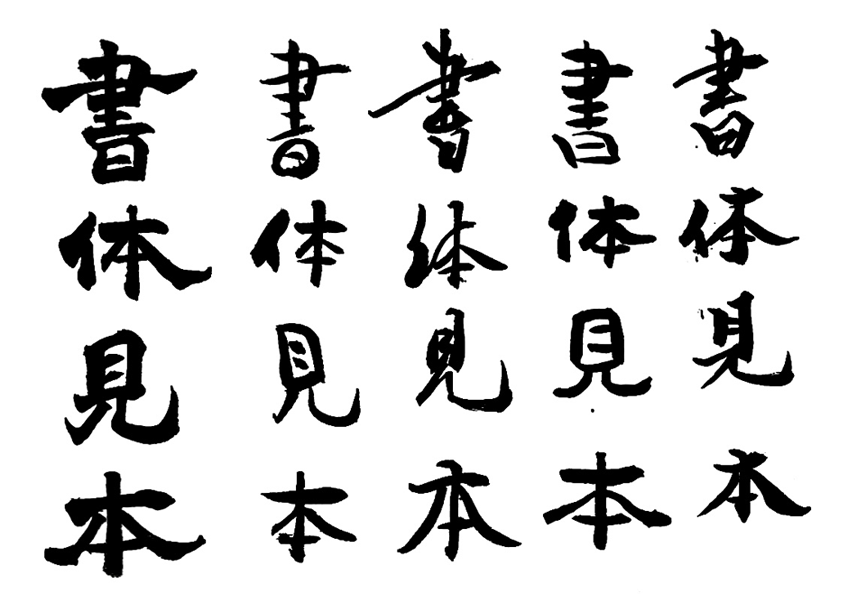 書体見本
書体見本
書体見本
書体見本
書体見本